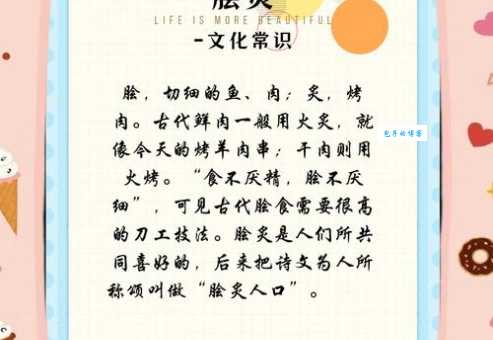 脍炙
LIFE IS MORE BEAUTIFUL
-文化常识
脍，切细的鱼、肉；炙，烤
肉。古代鲜肉一般用火炙，就
像今天的烤羊肉串；干肉则用
火烤。“食不厌精，脍不厌
细”，可见古代脍食需要很高
的刀工技法。脍炙是人们所共
同喜好的，后来把诗文为人所
称颂叫做“脍炙人口”。